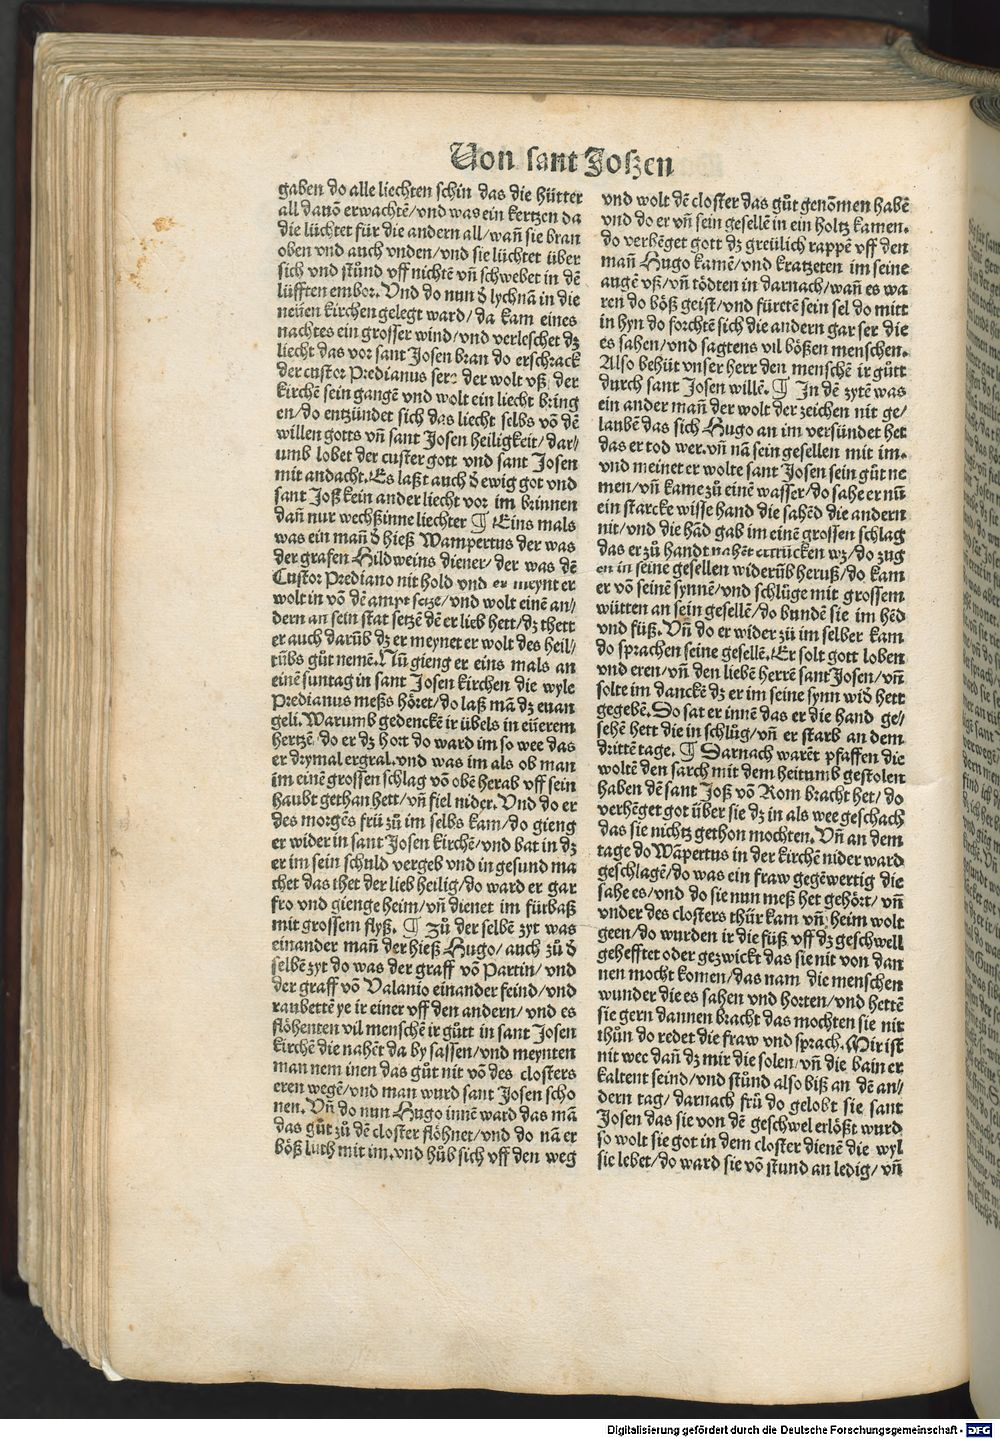 Von sant Joßen
gaben do alle liechten schin das die hütter
all dauō erwachtē/vnd was ein kertzen da
die lüchtet für die andern all/wañ sie bran
oben vnd auch vnden/vnd sie lüchtet über
sich vnd stůnd vff nichtē vñ schwebet in dē
lüfften embor. Vnd do nun d̄ lychnā in die
neüen kirchen gelegt ward/da kam eines
nachtes ein grosser wind/vnd verleschet dz
liecht das vor sant Josen bran do erschrack
der custor Predianus sere der wolt vß der
kirchē sein gangē vnd wolt ein liecht bring
en/do entzündet sich das liecht selbs vō dē
willen gotts vñ sant Josen heiligkeit/dar/
umb lobet der custer gott vnd sant Josen
mit andacht. Es laßt auch d̄ ewig got vnd
sant Joß kein ander liecht vor im brinnen
dañ nur wechßinne liechter ¶ Eins mals
was ein mañ d̄ hieß Wampertus der was
der grafen Hildweins diener/der was dē
Custor Prediano nit hold vnd er meynt er
wolt in vō dē ampt setze/vnd wolt einē an/
dern an sein stat setzē dē er lieb hett/dz thett
er auch darūb dz er meynet er wolt des heil/
tūbs gůt nemē. Nū gieng er eins mals an
einē suntag in sant Josen kirchen die wyle
Predianus meßs höret/do laß mā dz euan
geli. Warumb gedenckē ir übels in eüerem
hertzē do er dz hort do ward im so wee das
er drymal ergral. vnd was im als ob man
im einē grossen schlag vō obē herab vff sein
haubt gethan hett/vñ fiel nider. Vnd do er
des morgēs frü zů im selbs kam/do gieng
er wider in sant Josen kirchē/vnd bat in dz
er im sein schuld vergeb vnd in gesund ma
chet das thet der lieb heilig/do ward er gar
fro vnd gienge heim/vñ dienet im fürbaß
mit grossem flyß. ¶ Zů der selbē zyt was
einander mañ der hieß Hugo/auch zů d̄
selbē zyt do was der graff vō Partin/vnd
der graff vō Valanio einander feind/vnd
raubettē ye ir einer vff den andern/vnd es
flöhenten vil menschē ir gůtt in sant Josen
kirchē die nahēt da by sassen/vnd meynten
man nem inen das gůt nit vō des closters
eren wegē/vnd man wurd sant Josen scho
nen. Vñ do nun Hugo innē ward das mā
das gůt zů dē closter flöhnet/vnd do nā er
böß luth mit im. vnd hůb sich vff den weg
vnd wolt dē closter das gůt genōmen habē
vnd do er vñ sein gesellē in ein holtz kamen.
do verhēget gott dz greülich rappē vff den
mañ Hugo kamē/vnd kratzeten im seine
augē vß/vñ tödten in darnach/wañ es wa
ren do böß geist/vnd fürtē sein sel do mitt
in hyn do forchtē sich die andern gar ser die
es sahen/vnd sagtens vil bößen menschen.
Also behüt vnser herr den menschē ir gůtt
durch sant Josen willē. ¶ In dē zytē was
ein ander mañ der wolt der zeichen nit ge/
laubē das sich Hugo an im versündet het
das er tod wer. vñ nā sein gesellen mit im.
vnd meinet er wolte sant Josen sein gůt ne
men/vñ kame zů einē wasser/do sahe er nū
ein starcke wisse hand die sahēd die andern
nit/vnd die hād gab im einē grossen schlag
das er zů handt nahēt ertrūcken wz/do zug
en in seine gesellen widerūb heruß/do kam
er vō seinē synnē/vnd schlůge mit grossem
wütten an sein gesellē/do bundē sie im hēd
vnd füß. Vñ do er wider zů im selber kam
do sprachen seine gesellē. Er solt gott loben
vnd eren/vñ den liebē herrē sant Josen/vñ
solte im danckē dz er im seine synn wid̄ hett
gegebē. So sat er innē das er die hand ge/
sehē hett die in schlůg/vñ er starb an dem
drittē tage. ¶ Darnach warēt pfaffen die
woltē den sarch mit dem heitumb gestolen
haben dē sant Joß vō Rom bracht het/do
verhēget got über sie dz in als wee geschach
das sie nichtz gethon mochten. Vñ an dem
tage do Wāpertus in der kirchē nider ward
geschlagē/do was ein fraw gegēwertig die
sahe es/vnd do sie nun meß het gehört/vñ
vnder des closters thür kam vñ heim wolt
geen/do wurden ir die füß vff dz geschwell
gehefftet oder gezwickt das sie nit von dan
nen mocht komen/das nam die menschen
wunder die es sahen vnd horten/vnd hettē
sie gern dannen bracht das mochten sie nit
thůn do redet die fraw vnd sprach. Mir ist
nit wec dañ dz mir die solen/vñ die bain er
kaltent seind/vnd stůnd also biß an dē an/
dern tag/darnach frü do gelobt sie sant
Josen das sie von dē geschwel erlößt wurd
so wolt sie got in dem closter dienē die wyl
sie lebet/do ward sie vō stund an ledig/vñ
Digitalisierung gefördert durch die Deutsche Forschungsgemeinschaft - DFG